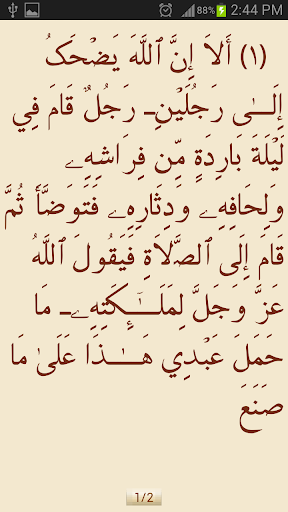 88% 2:44 PM
(١) أَلاَ إِنَّ ٱللَّهَ يَضْحَكُ
إِلَــٰى رَجُلَيْنِـ رَجُلٌ قَامَ فِي
لَيْلَةَ بَارِدَةٍ مِّن فِرَاشِهِۦ
وَلِحَافِهِۦ وَدِثَارِهِۦ فَتَوَضَّأَ ثُمَّ
قَامَ إِلَى ٱلصَّلَاةِ فَيَقُولَ ٱللَّهُ
عَزَّ وَجَلَّ لِمَلَــٰٓـِٕكَتِهِۦـ مَا
حَمَلَ عَبْدِي هَــٰـذَا عَلَىٰ مَا
صَنَعَ
1/2